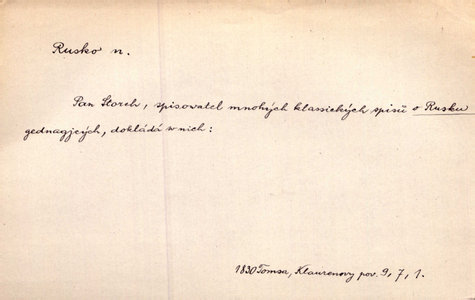 Rusko n.
Pan Storch, spisowatel mnohých klassických spisů o Rusku
gednagjcých, dokládá w nich:
1830 Tomsa, Klaurenovy pov. 9, 7, 1.